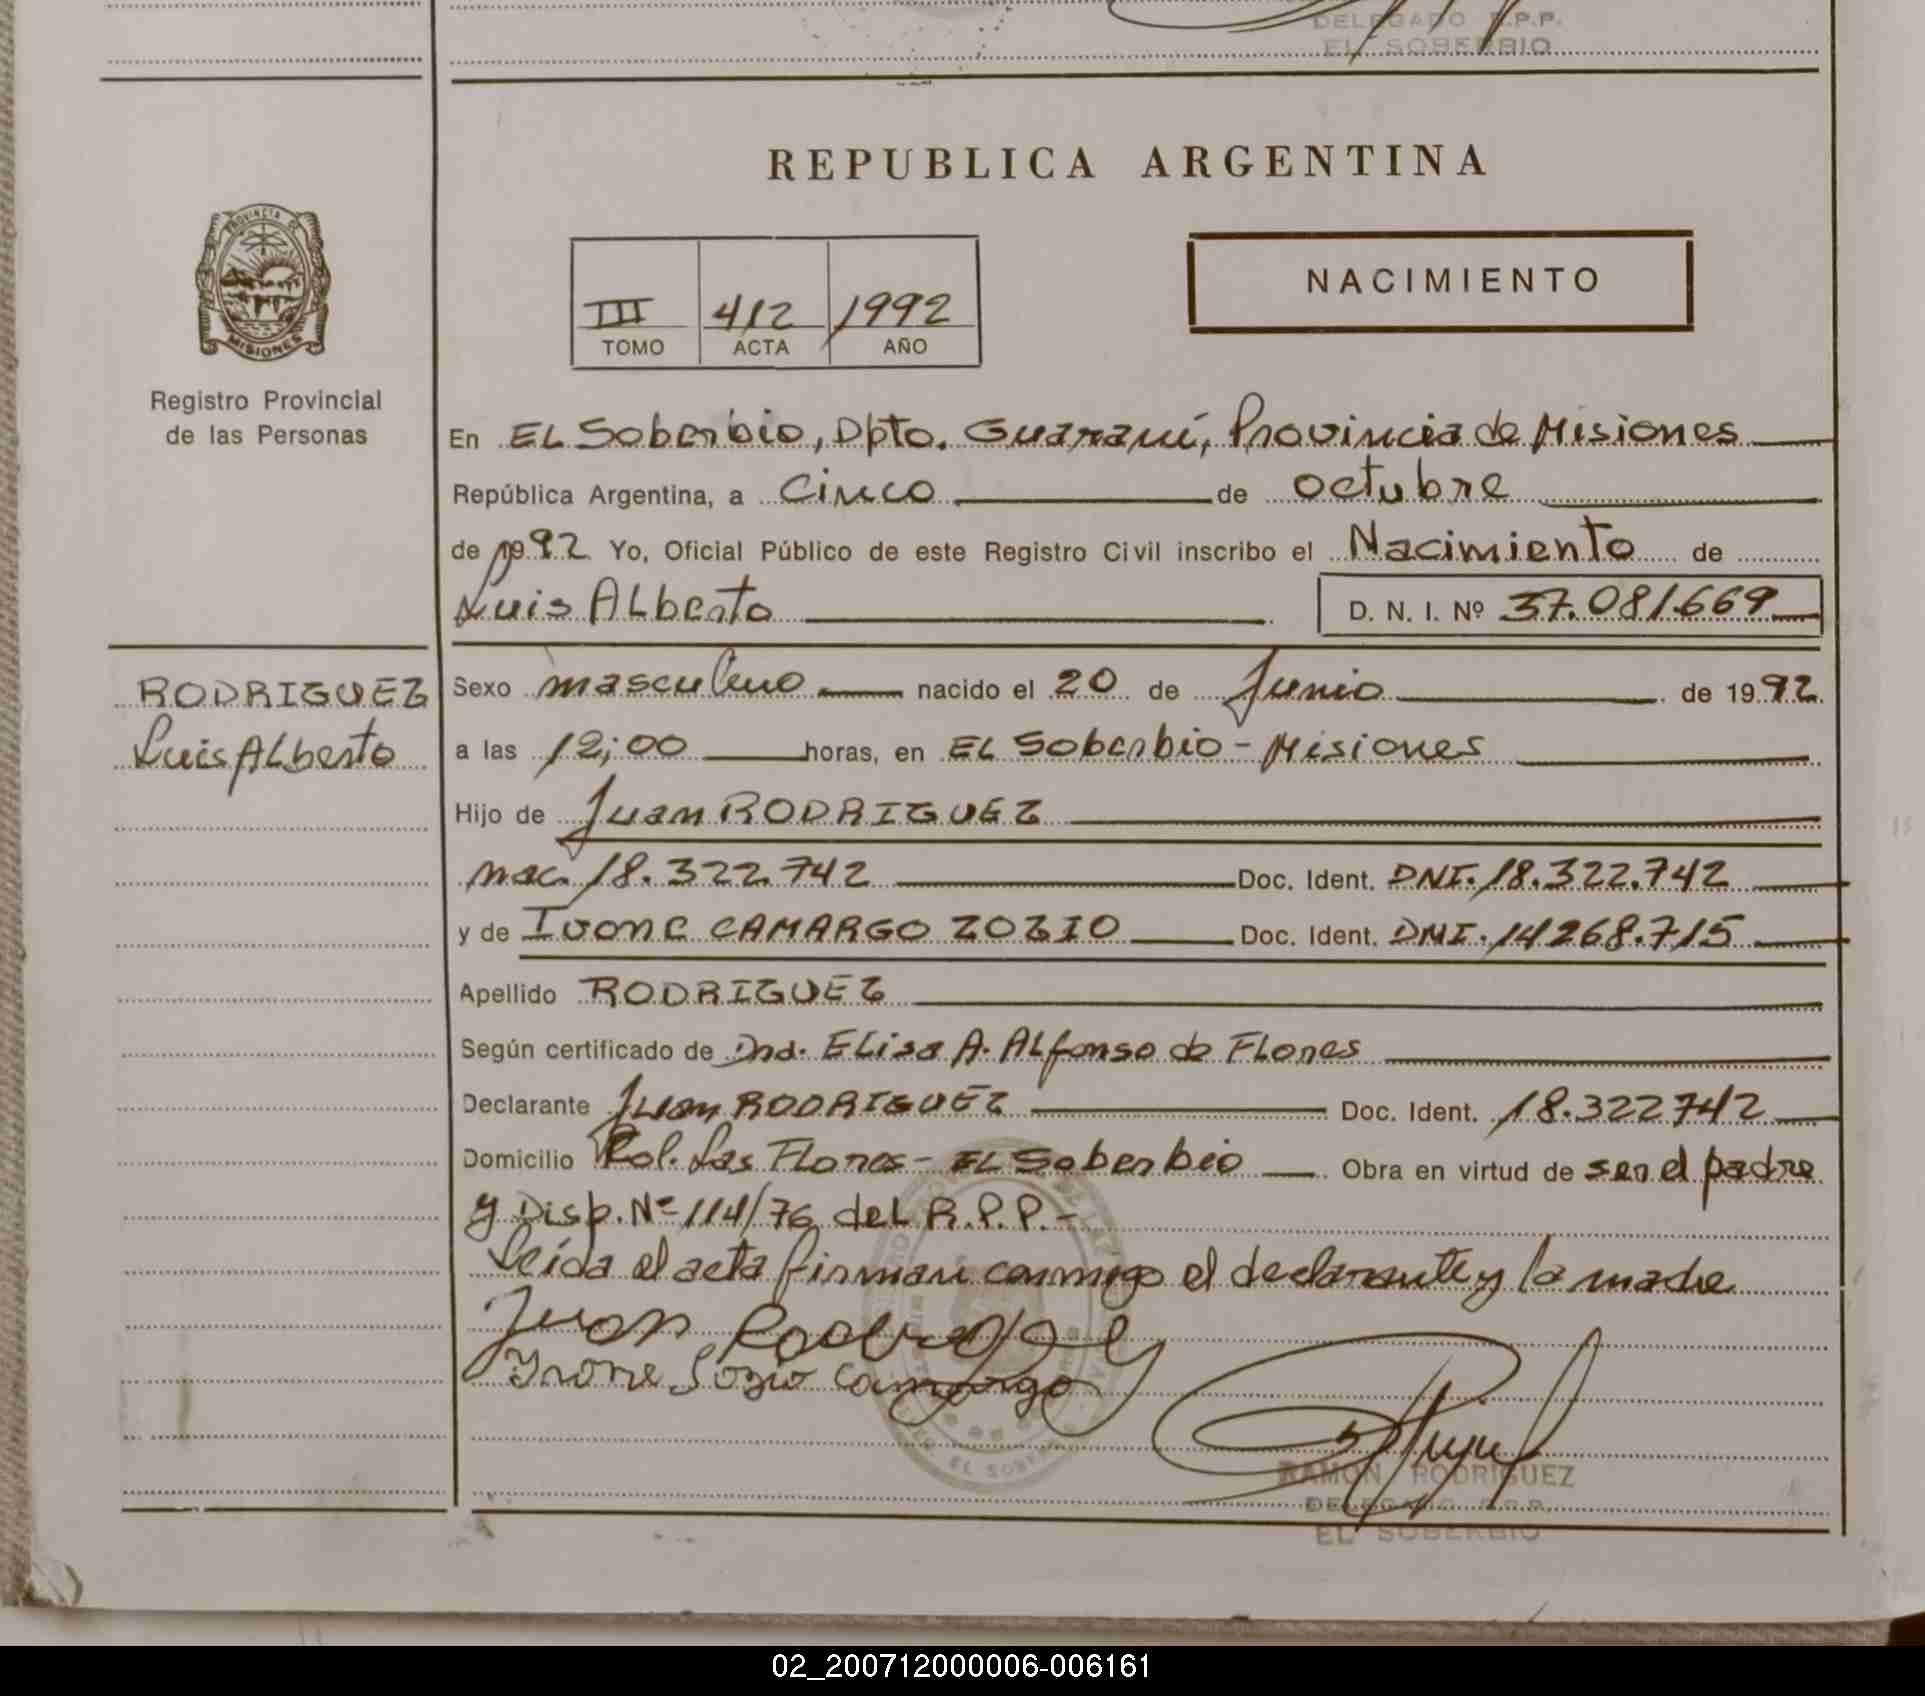 DELEGADO R.P.P.
EL SOBERBIO
REPUBLICA ARGENTINA
PROVINCIA DE
MISIONES
Registro Provincial
de las Personas
III 412 1992
TOMO ACTA AÑO
NACIMIENTO
En EL Soberbio, Dpto. Guaraní, Provincia de Misiones
República Argentina, a Cinco de octubre
de 1992 Yo, Oficial Público de este Registro Civil inscribo el Nacimiento de
Luis ALberto D. N. I. Nº 37.081.669
RODRIGUEZ
Luis ALberto
Sexo masculino nacido el 20 de Junio de 1992.
a las 12;00 horas, en EL Soberbio - Misiones
Hijo de Juan RODRIGUEZ
nac. 18.322.742 Doc. Ident. DNI. 18.322.742
y de Ivone CAMARGO ZOZIO Doc. Ident. DNI. 14268.715
Apellido RODRIGUEZ
Según certificado de Dña. Elisa A. ALfonso de FLores
Declarante Juan RODRIGUEZ Doc. Ident. 18.322742
Domicilio Col. Las FLores - EL Soberbio Obra en virtud de ser el padre
y Disp. Nº 114/76 deL R.P.P.-
Leída el acta firman conmigo el declarante y la madre
Juan Rodriguez
Ivone Sozio Camargo
RAMON RODRIGUEZ
DELEGADO R.P.P.
EL SOBERBIO
02_200712000006-006161